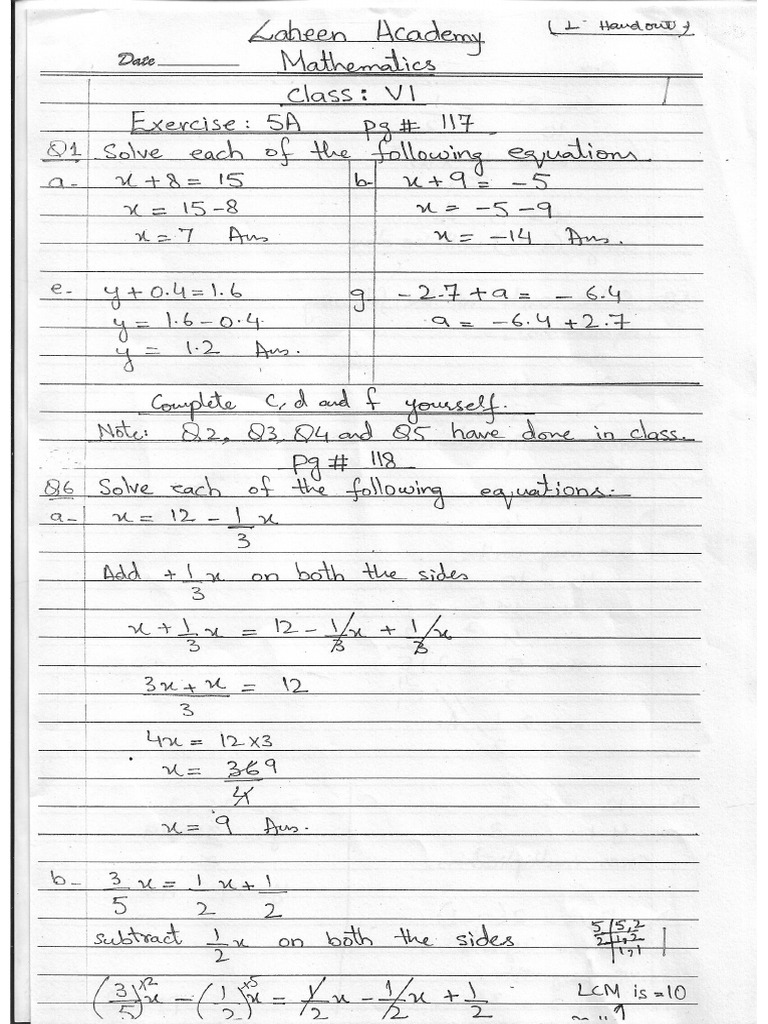 Laheen Academy (1- Handout)
Date
Mathematics
Class: VI
Exercise: 5A pg # 117
Q1 Solve each of the following equations
a- x + 8 = 15 b- x + 9 = -5
x = 15 - 8 x = -5 - 9
x = 7 Ans x = -14 Ans.
e- y + 0.4 = 1.6 g- -2.7 + a = -6.4
y = 1.6 - 0.4 a = -6.4 + 2.7
y = 1.2 Ans.
Complete c, d and f yourself.
Note: Q2, Q3, Q4 and Q5 have done in class.
pg # 118
Q6 Solve each of the following equations:-
a- x = 12 - 1/3 x
Add + 1/3 x on both the sides
x + 1/3 x = 12 - 1/3 x + 1/3 x
3x + x / 3 = 12
4x = 12 × 3
x = 36 9 / 4
x = 9 Ans.
b- 3/5 x = 1/2 x + 1/2
subtract 1/2 x on both the sides 5 | 5, 2
2 | 1, 2
1, 1
(3/5)×2 x - (1/2)×5 x = 1/2 x - 1/2 x + 1/2 LCM is = 10